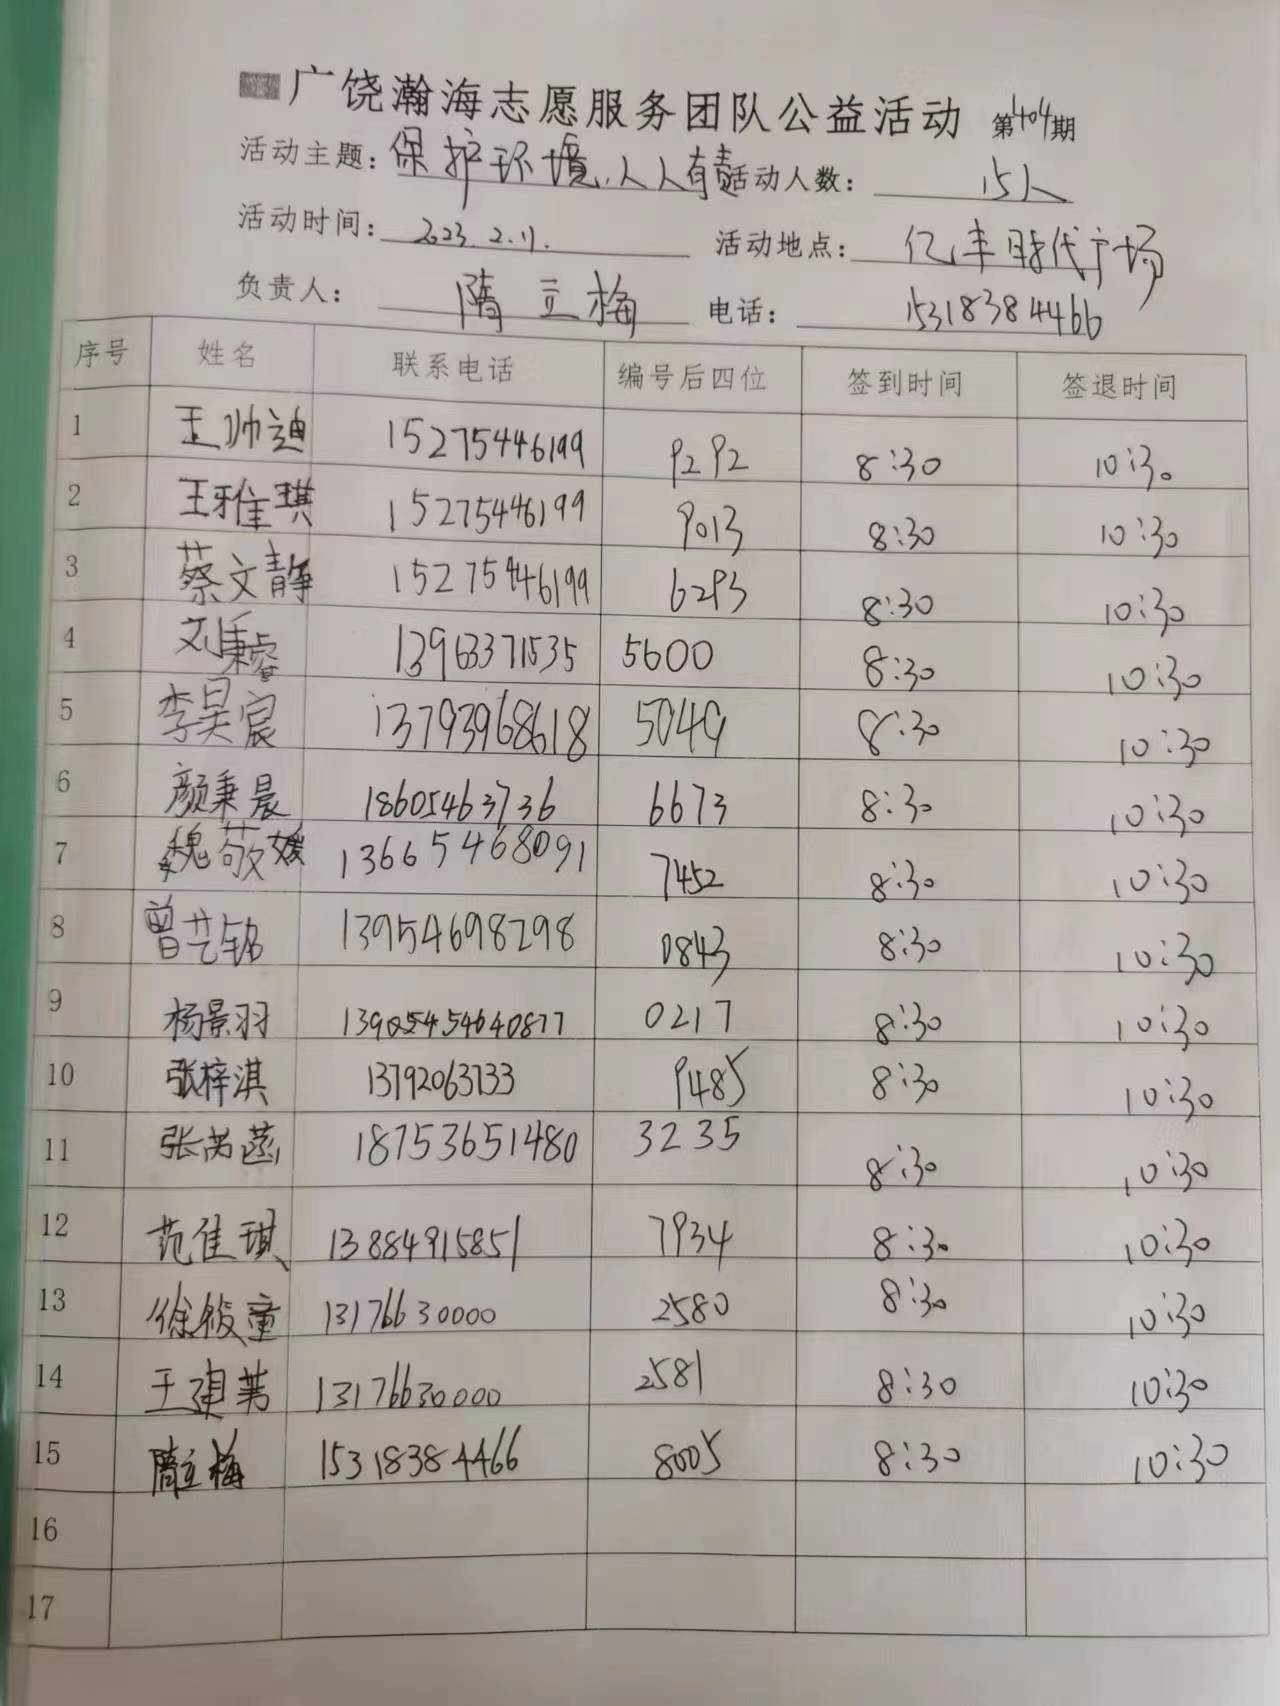 广饶瀚海志愿服务团队公益活动 第404期
活动主题：保护环境、人人有责 活动人数：15人
活动时间：2023.2.11. 活动地点：亿丰时代广场
负责人：隋立梅 电话：15318384466
序号 姓名 联系电话 编号后四位 签到时间 签退时间
1 王帅迪 15275446199 9292 8:30 10:30
2 王雅琪 15275446199 9013 8:30 10:30
3 蔡文静 15275446199 6293 8:30 10:30
4 刘秉睿 13963371535 5600 8:30 10:30
5 李昊宸 13793968618 5049 8:30 10:30
6 颜秉晨 18605463736 6673 8:30 10:30
7 魏敬媛 13665468091 7452 8:30 10:30
8 曾艺铭 13954698298 0843 8:30 10:30
9 杨景羽 0217 8:30 10:30
10 张梓淇 13792063733 9485 8:30 10:30
11 张芮菡 18753651480 3235 8:30 10:30
12 范佳琪 13884915851 7934 8:30 10:30
13 徐筱童 13176630000 2580 8:30 10:30
14 王建 13176630000 2581 8:30 10:30
15 隋立梅 15318384466 8005 8:30 10:30
16
17